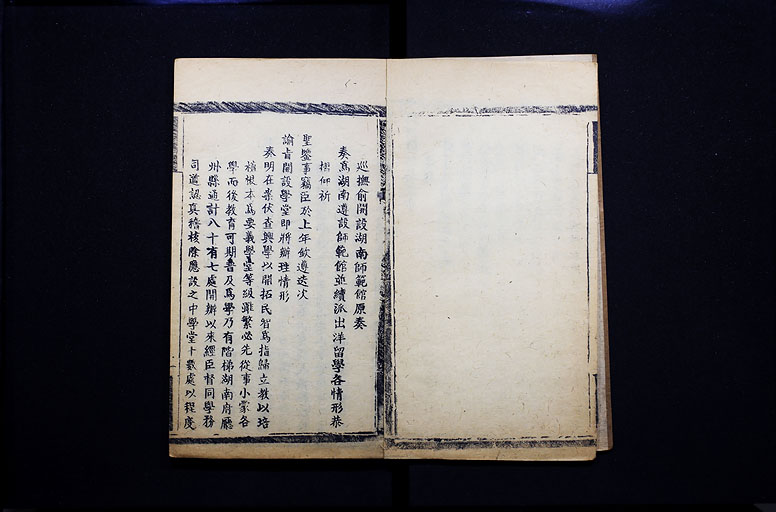 巡撫俞開設湖南師範館原奏
奏爲湖南遵設師範館並續派出洋留學各情形恭
摺仰祈
聖鑒事竊臣於上年欽遵迭次
諭旨開設學堂即將辦理情形
奏明在案伏查興學以開拓民智爲指歸立教以培
植根本爲要義學堂等級雖繁必先從事小蒙各
學而後教育可期普及爲學乃有階梯湖南府廳
州縣通計八十有七處開辦以來經臣督同學務
司道認真稽核除應設之中學堂十數處以程度